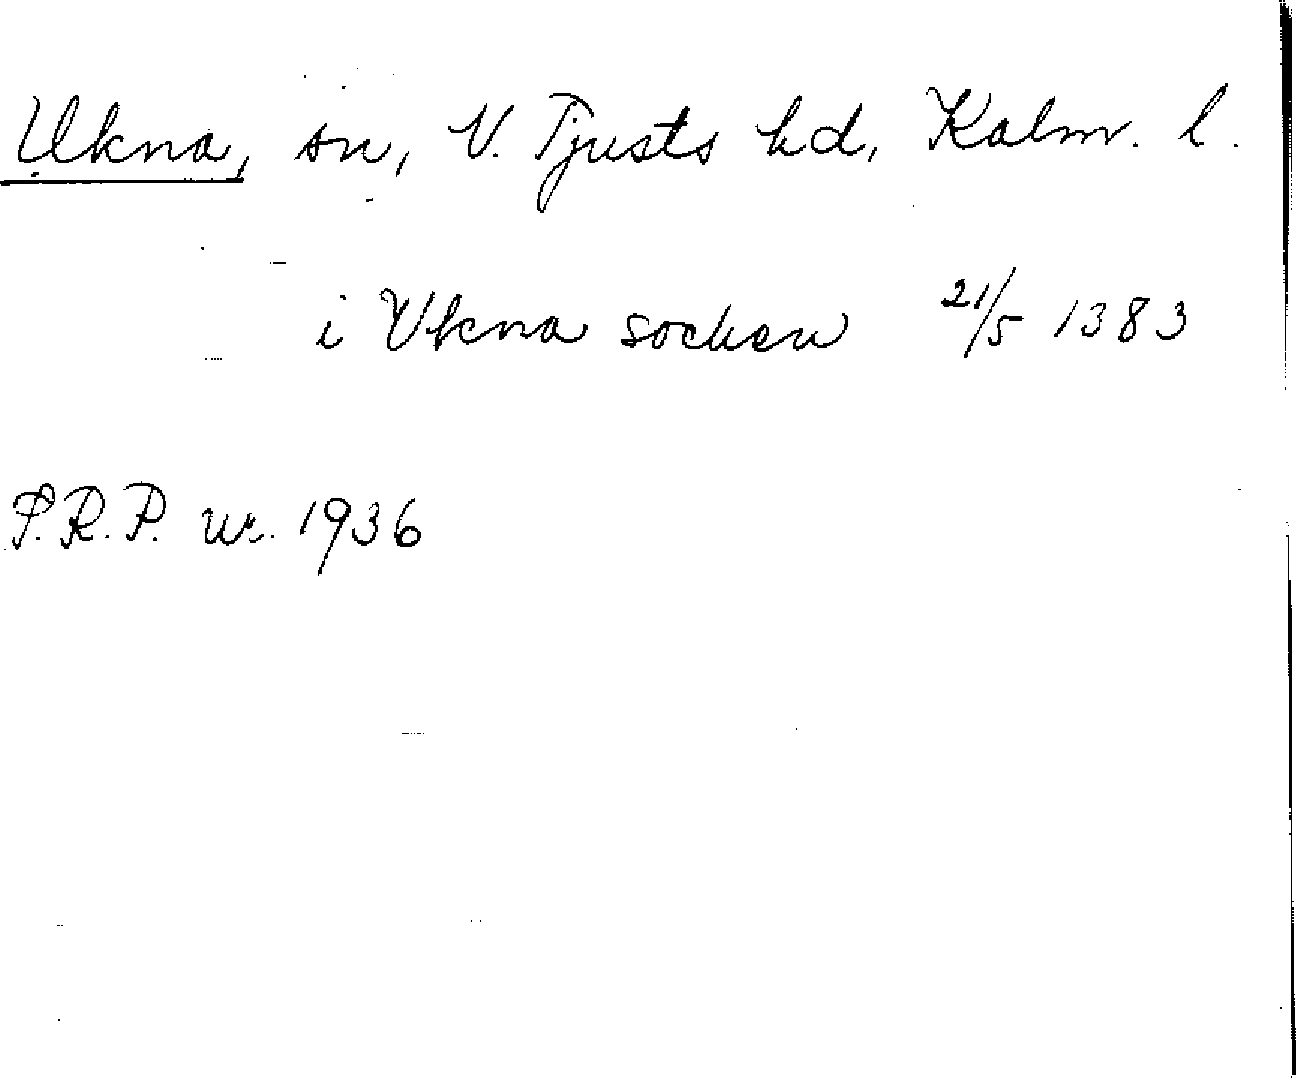 Ukna, sn, V. Tjusts hd, Kalm. l.
i Vkna socken 21/5 1383
P.R.P. nr. 1936